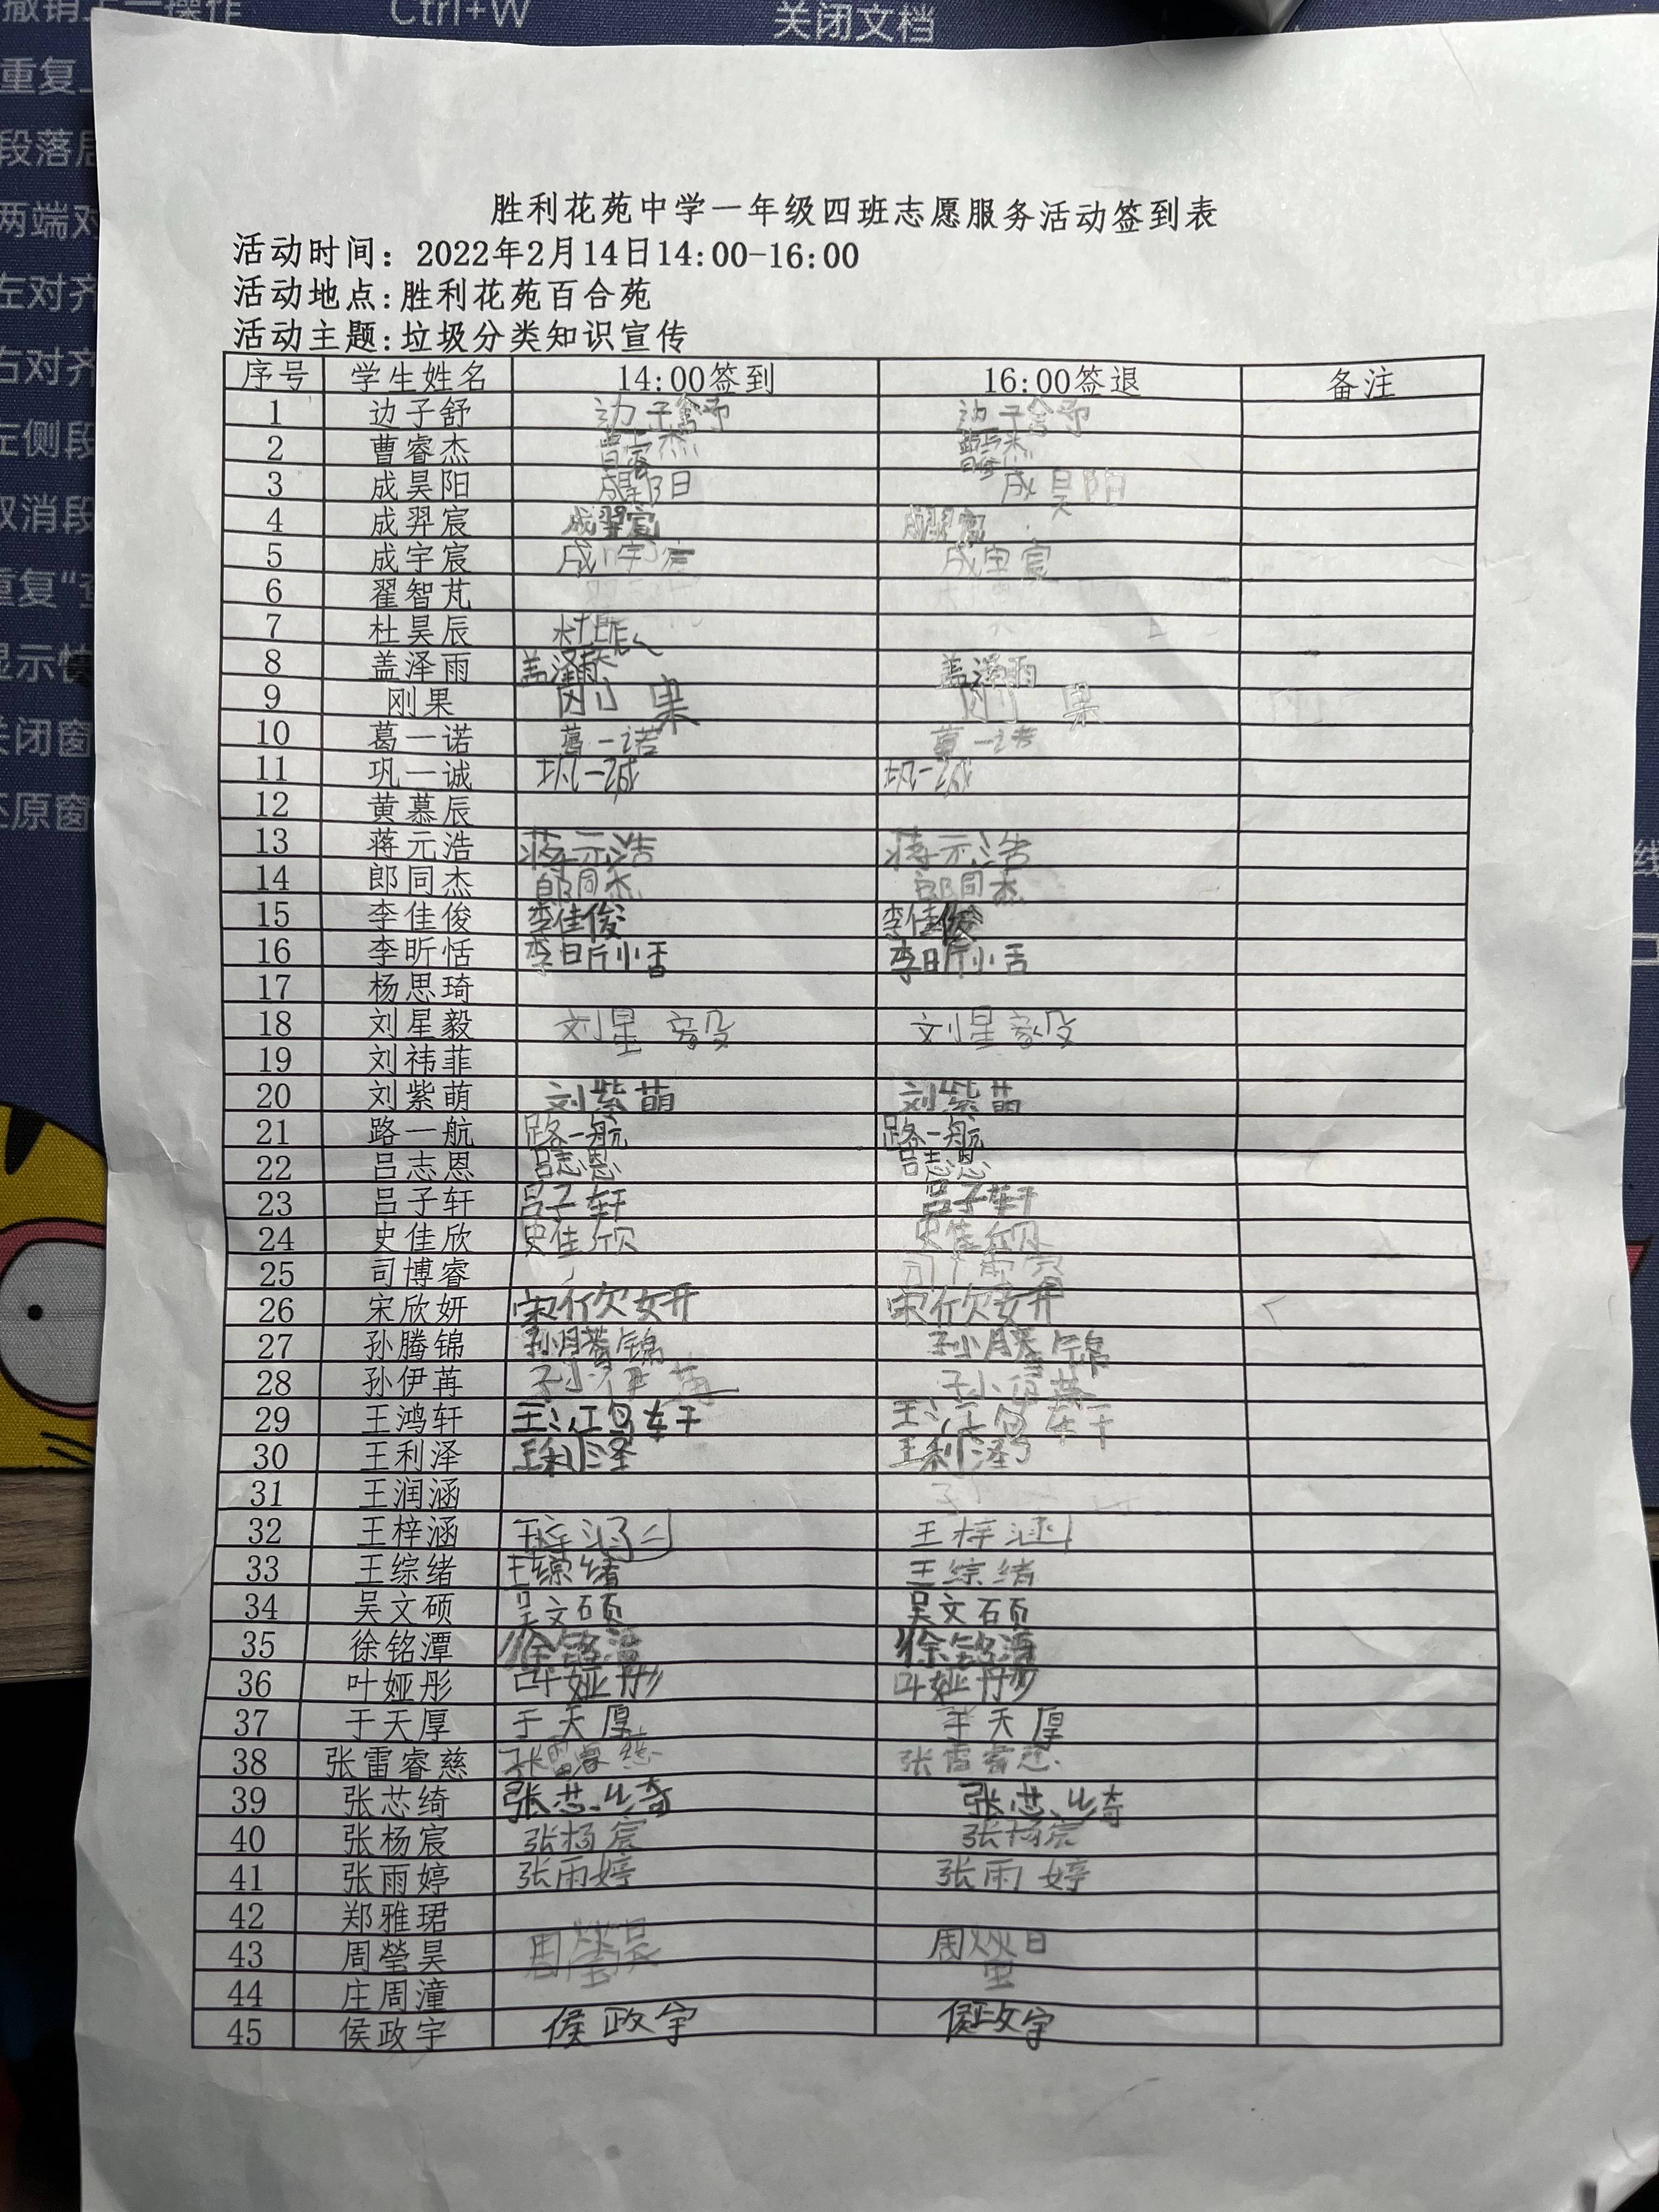 撤销上一操作 Ctrl+W 关闭文档
重复上
段落居
两端对
左对齐
右对齐
左侧段
取消段
重复"查
显示快
关闭窗
还原窗
胜利花苑中学一年级四班志愿服务活动签到表
活动时间：2022年2月14日14:00-16:00
活动地点:胜利花苑百合苑
活动主题:垃圾分类知识宣传
序号 学生姓名 14:00签到 16:00签退 备注
1 边子舒 边子舒 边子舒
2 曹睿杰 曹睿杰 曹睿杰
3 成昊阳 成昊阳 成昊阳
4 成羿宸 成羿宸 成羿宸
5 成宇宸 成宇宸 成宇宸
6 翟智芃
7 杜昊辰 杜昊辰
8 盖泽雨 盖泽雨 盖泽雨
9 刚果 刚果 刚果
10 葛一诺 葛一诺 葛一诺
11 巩一诚 巩一诚 巩一诚
12 黄慕辰
13 蒋元浩 蒋元浩 蒋元浩
14 郎同杰 郎同杰 郎同杰
15 李佳俊 李佳俊 李佳俊
16 李昕恬 李昕恬 李昕恬
17 杨思琦
18 刘星毅 刘星毅 刘星毅
19 刘祎菲
20 刘紫萌 刘紫萌 刘紫萌
21 路一航 路一航 路一航
22 吕志恩 吕志恩 吕志恩
23 吕子轩 吕子轩 吕子轩
24 史佳欣 史佳欣 史佳欣
25 司博睿
26 宋欣妍 宋欣妍 宋欣妍
27 孙腾锦 孙腾锦 孙腾锦
28 孙伊苒 孙伊苒 孙伊苒
29 王鸿轩 王鸿轩 王鸿轩
30 王利泽 王利泽 王利泽
31 王润涵
32 王梓涵 王梓涵 王梓涵
33 王综绪 王综绪 王综绪
34 吴文硕 吴文硕 吴文硕
35 徐铭潭 徐铭潭 徐铭潭
36 叶娅彤 叶娅彤 叶娅彤
37 于天厚 于天厚 于天厚
38 张雷睿慈 张雷睿慈 张雷睿慈
39 张芯绮 张芯绮 张芯绮
40 张杨宸 张杨宸 张杨宸
41 张雨婷 张雨婷 张雨婷
42 郑雅珺
43 周莹昊 周莹昊 周莹昊
44 庄周潼
45 侯政宇 侯政宇 侯政宇